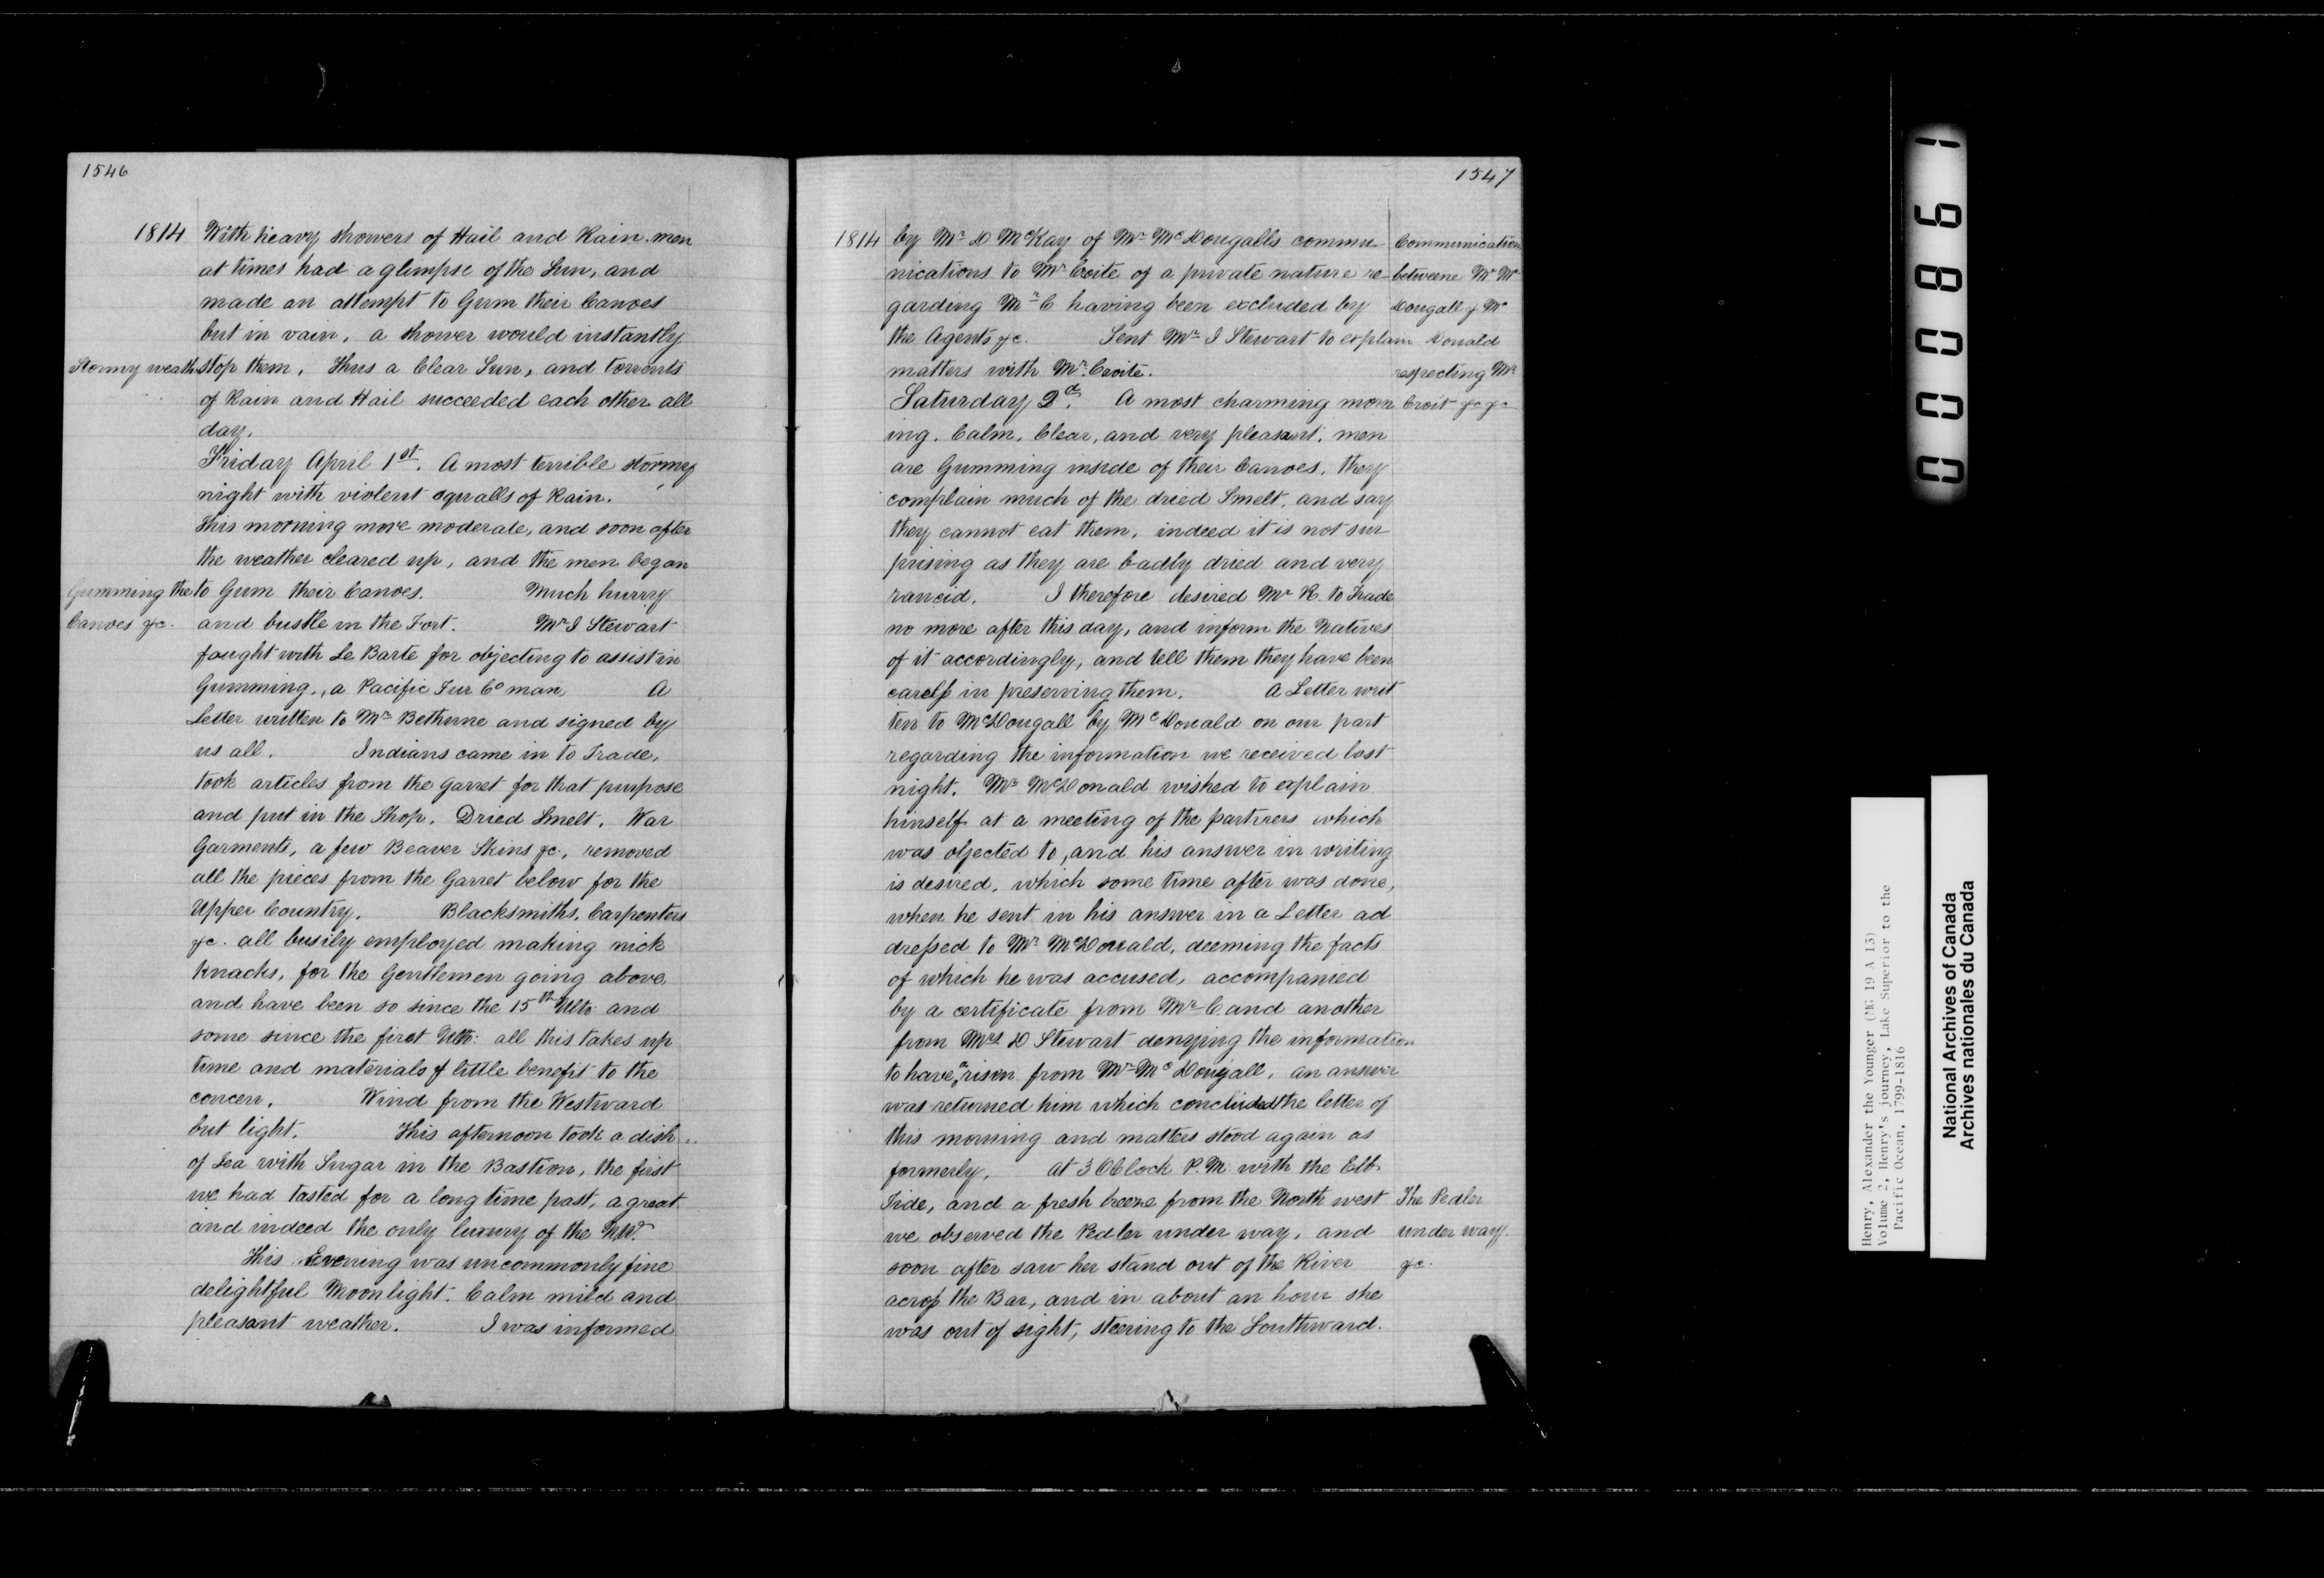 1546
1814 With heavy showers of Hail and Rain. men
at times had a glimpse of the Sun, and
made an attempt to Gum their Canoes
but in vain, a shower would instantly
Stormy weath stop them. Thus a Clear Sun, and torrents
of Rain and Hail succeeded each other all
day.
Friday April 1st. A most terrible stormy
night with violent squalls of Rain.
This morning more moderate, and soon after
the weather cleared up, and the men began
Gumming the to Gum their Canoes. Much hurry
Canoes &c. and bustle in the Fort. Mr I Stewart
fought with Le Barte for objecting to assist in
Gumming, a Pacific Fur Co man A
Letter written to Mr Bethune and signed by
us all. Indians came in to Trade,
took articles from the Garret for that purpose
and put in the Shop. Dried Smelt. War
Garments, a few Beaver Skins &c, removed
all the pieces from the Garret below for the
Upper Country. Blacksmiths, Carpenters
&c. all busily employed making nick
knacks, for the Gentlemen going above,
and have been so since the 15th Ulto: and
some since the first Ulto: all this takes up
time and materials of little benefit to the
concern. Wind from the Westward
but light. This afternoon took a dish
of Tea with Sugar in the Bastion, the first
we had tasted for a long time past, a great
and indeed the only luxury of the NW.
This Evening was uncommonly fine
delightful Moonlight. Calm mild and
pleasant weather. I was informed
1547
1814 by Mr D McKay of Mr McDougalls commu Communication
nications to Mr Croite of a private nature re- betweene Mr Mc
garding Mr C having been excluded by Dougall & Mc
the Agents &c. Sent Mr I Stewart to explain Donald
matters with Mr. Croite. respecting Mr
Saturday 2d. A most charming morn Croit &c &c
ing. Calm, Clear, and very pleasant. men
are Gumming inside of their Canoes. they
complain much of the dried Smelt, and say
they cannot eat them, indeed it is not sur
prising as they are badly dried and very
rancid. I therefore desired Mr K. to Trade
no more after this day, and inform the Natives
of it accordingly, and tell them they have been
careless in preserving them. A Letter writ
ten to McDougall by McDonald on our part
regarding the information we received last
night. Mr McDonald wished to explain
himself at a meeting of the partners which
was objected to, and his answer in writing
is desired, which some time after was done,
when he sent in his answer in a Letter ad
dressed to Mr McDonald, deeming the facts
of which he was accused, accompanied
by a certificate from Mr C and another
from Mrs D Stewart denying the information
to have arisen from Mr McDougall, an answer
was returned him which concluded the letter of
this morning and matters stood again as
formerly. At 3 OClock P.M. with the Ebb
Tide, and a fresh breeze from the North west The Pedler
we observed the Pedler under way, and under way
soon after saw her stand out of the River &c.
across the Bar, and in about an hour she
was out of sight, steering to the Southward.
000861
Henry, Alexander the Younger (MG 19 A 13)
Volume 2, Henry's journey, Lake Superior to the
Pacific Ocean, 1799-1816
National Archives of Canada
Archives nationales du Canada